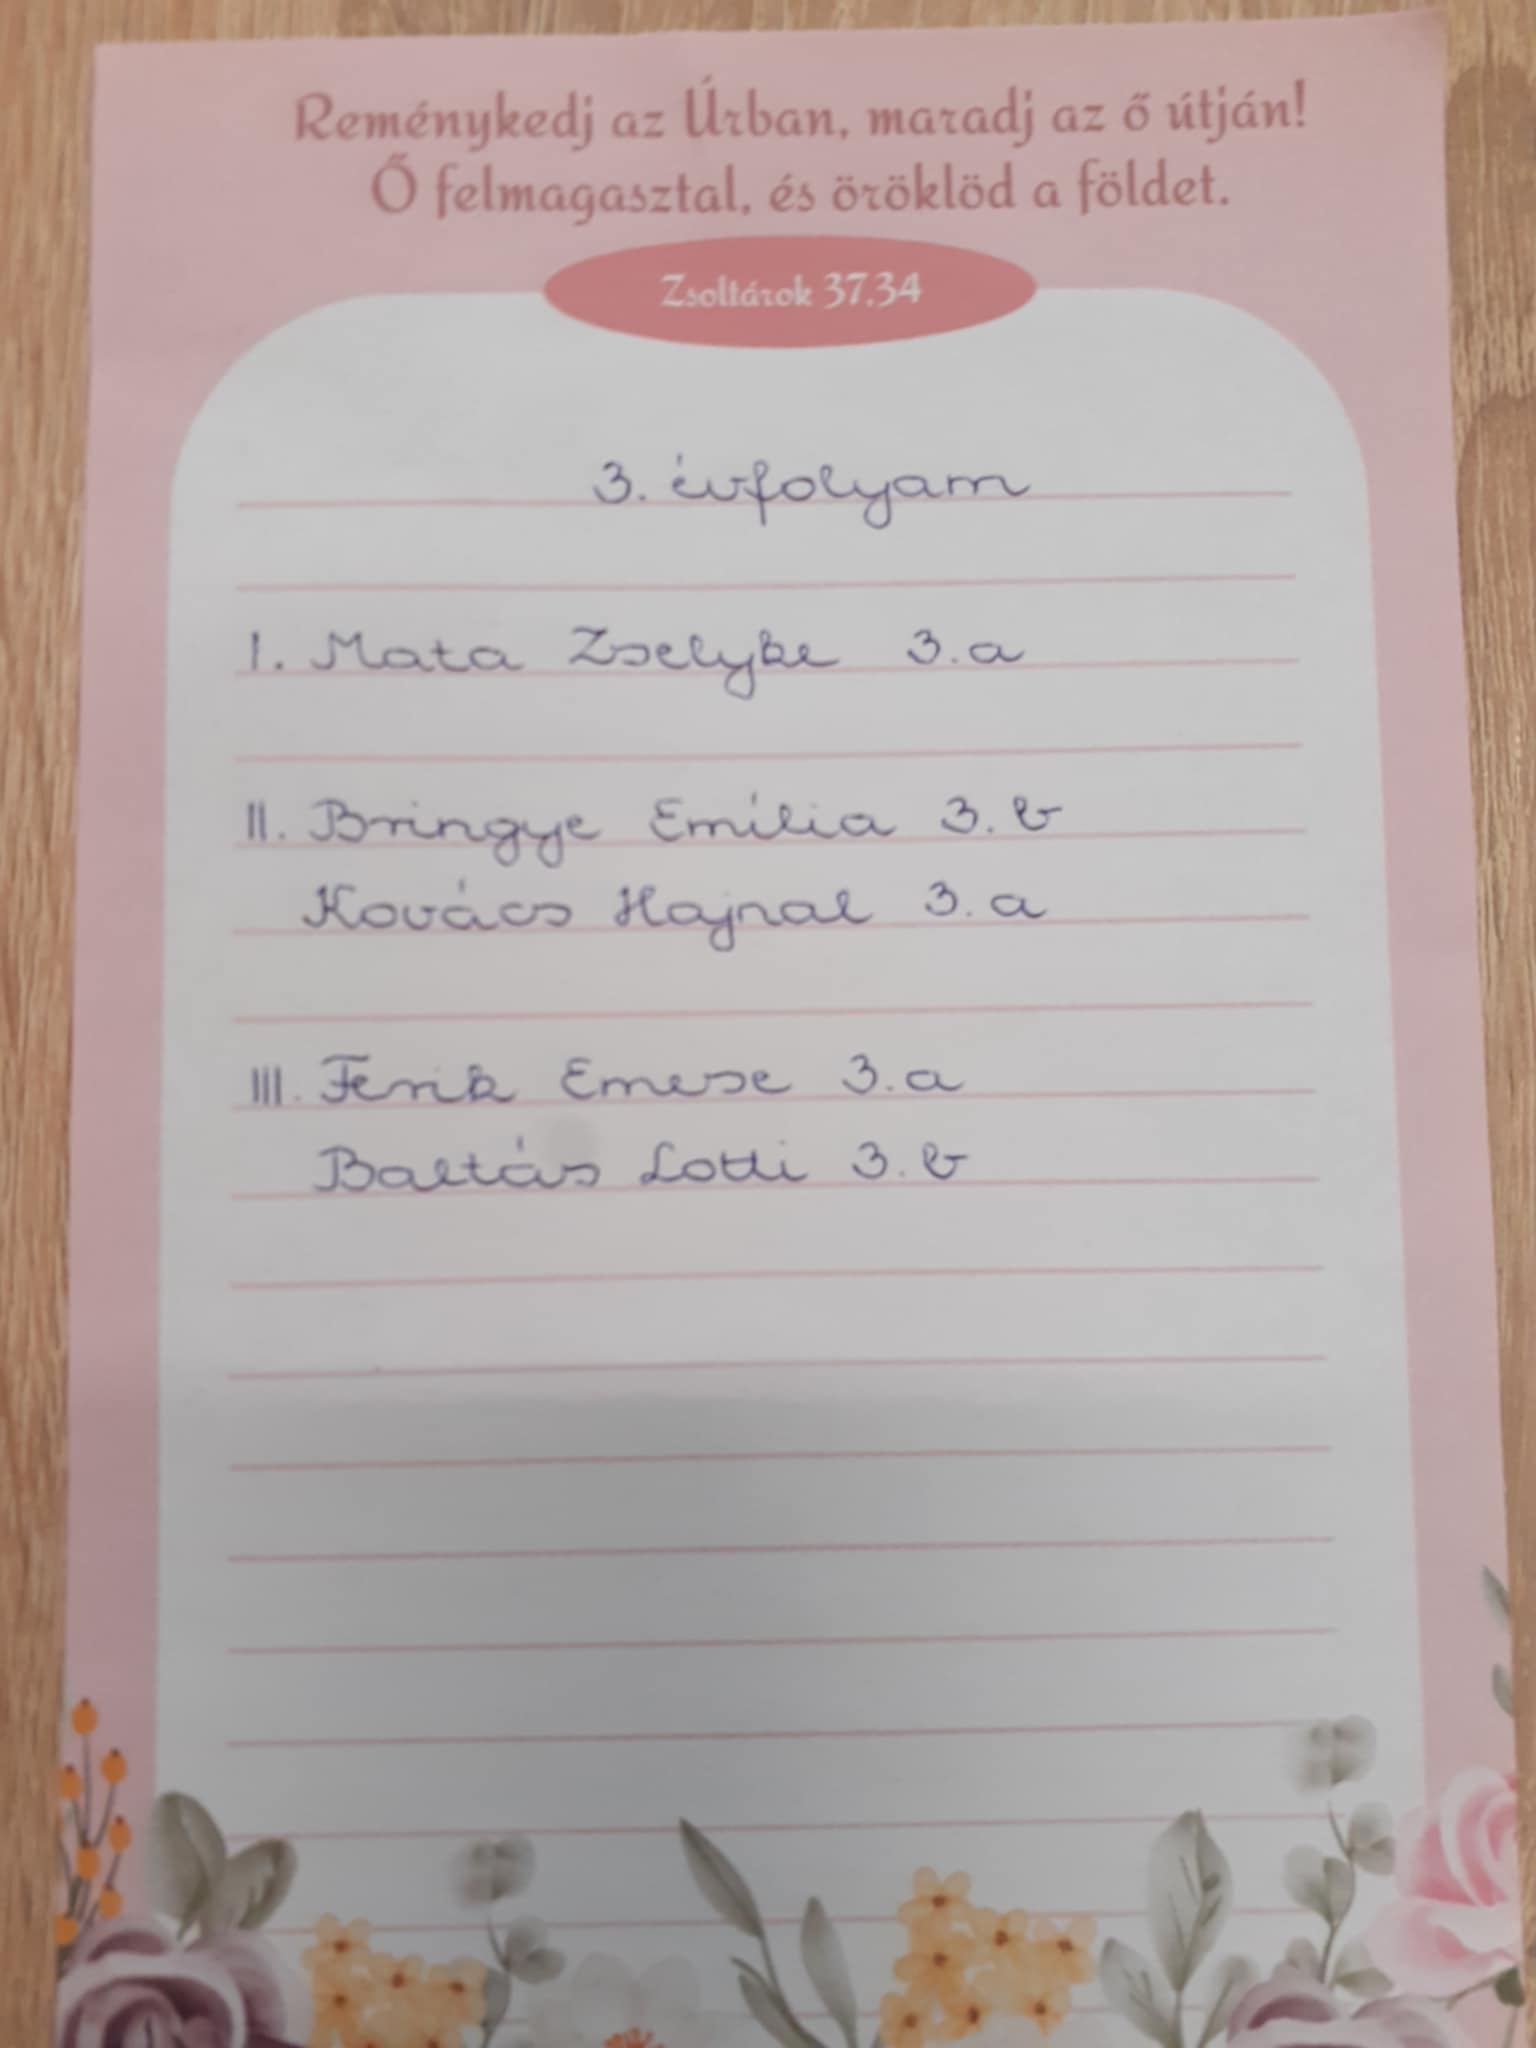 Reménykedj az Úrban, maradj az ő útján!
Ő felmagasztal, és öröklöd a földet.
Zsoltárok 37,34
3. évfolyam
I. Mata Zselyke 3.a
II. Bringye Emília 3.b
Kovács Hajnal 3.a
III. Ferik Emese 3.a
Baltás Lotti 3.b